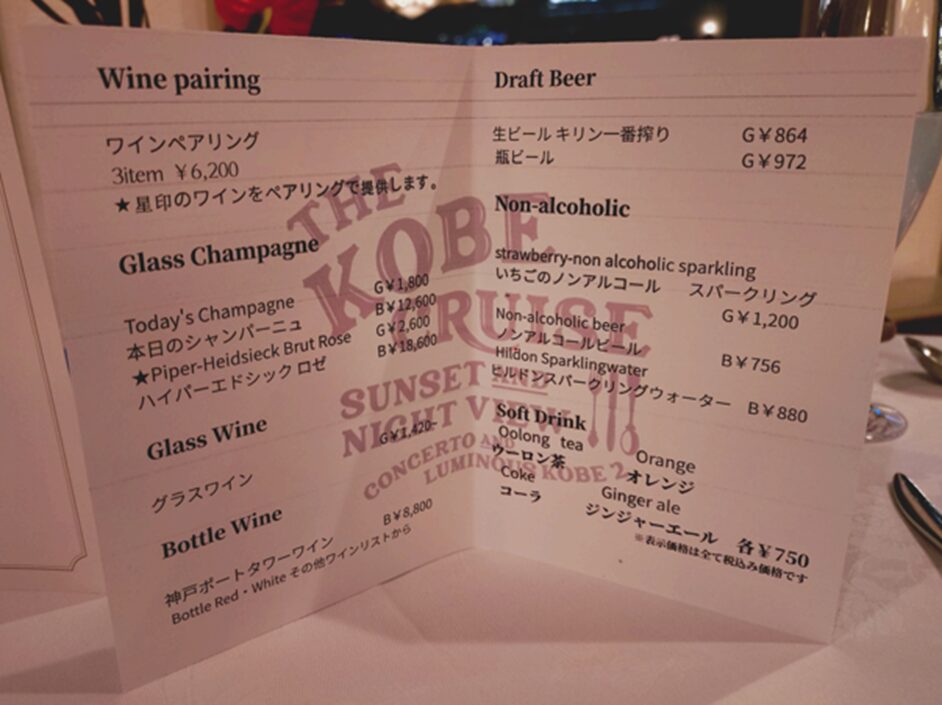 Wine pairing
ワインペアリング
3item ￥6,200
★星印のワインをペアリングで提供します。
Glass Champagne
Today's Champagne G￥1,800
本日のシャンパーニュ B￥12,600
★Piper-Heidsieck Brut Rose G￥2,600
ハイパーエドシック ロゼ B￥18,600
Glass Wine
グラスワイン G￥1,420~
Bottle Wine
神戸ポートタワーワイン B￥8,800
Bottle Red・White その他ワインリストから
Draft Beer
生ビール キリン一番搾り G￥864
瓶ビール G￥972
Non-alcoholic
strawberry-non alcoholic sparkling
いちごのノンアルコール スパークリング
G￥1,200
Non-alcoholic beer
ノンアルコールビール B￥756
Hildon Sparklingwater
ヒルドンスパークリングウォーター B￥880
Soft Drink
Oolong tea Orange
ウーロン茶 オレンジ
Coke Ginger ale
コーラ ジンジャーエール 各￥750
※表示価格は全て税込み価格です
THE
KOBE
CRUISE
SUNSET AND
NIGHT VIEW
CONCERTO AND
LUMINOUS KOBE 2